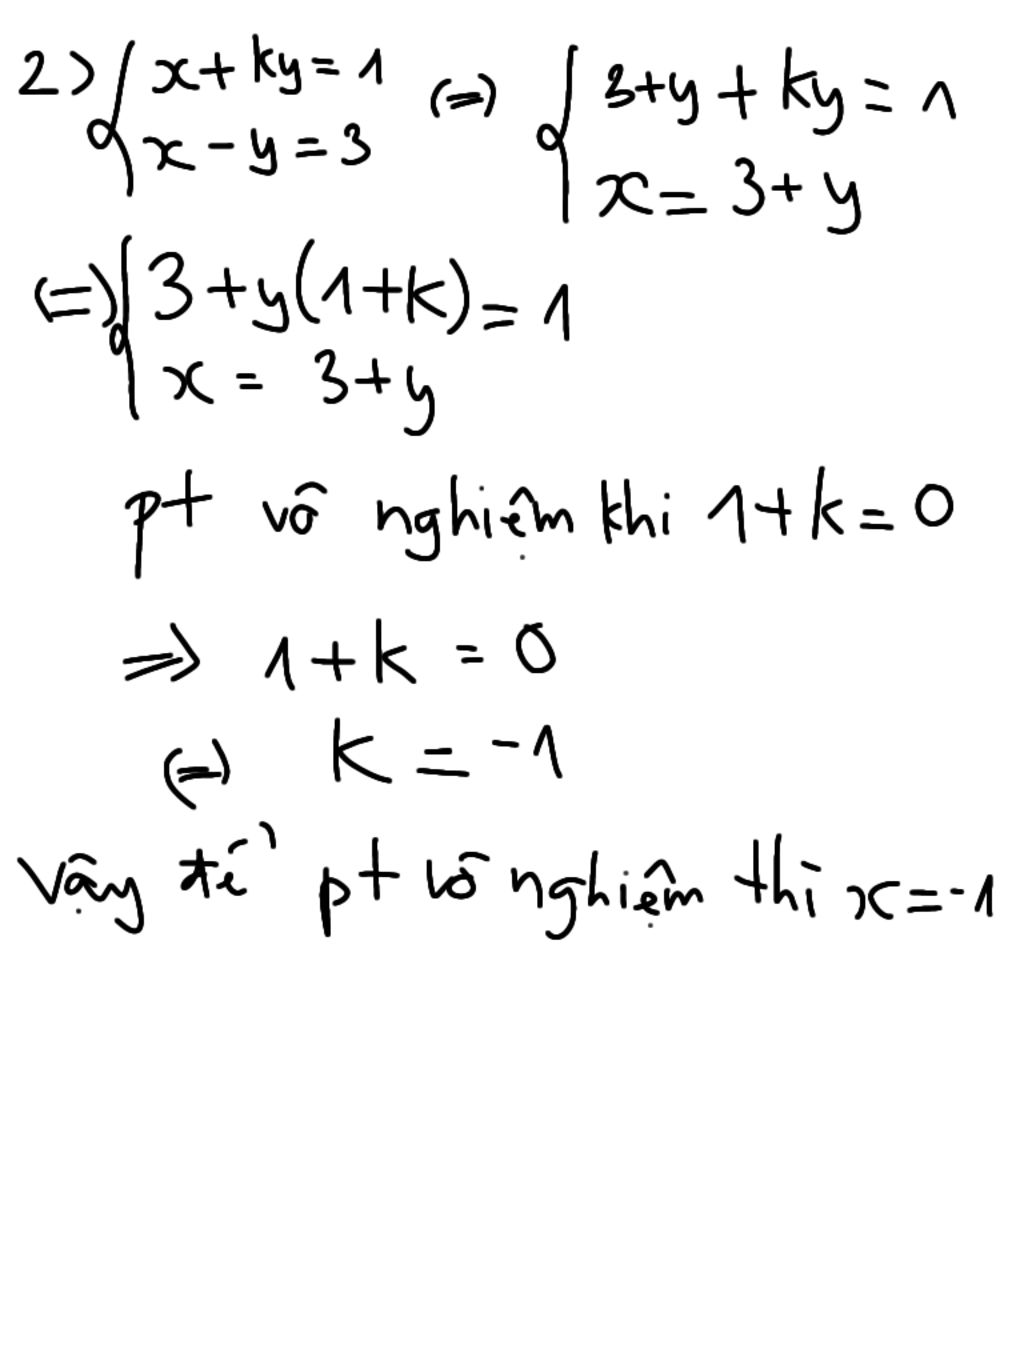 2> { x + ky = 1 (=) { 3+y + ky = 1
x - y = 3 x = 3 + y
(=) { 3 + y(1+k) = 1
x = 3 + y
pt vô nghiệm khi 1 + k = 0
=> 1 + k = 0
(=) k = -1
Vậy để pt vô nghiệm thì x = -1